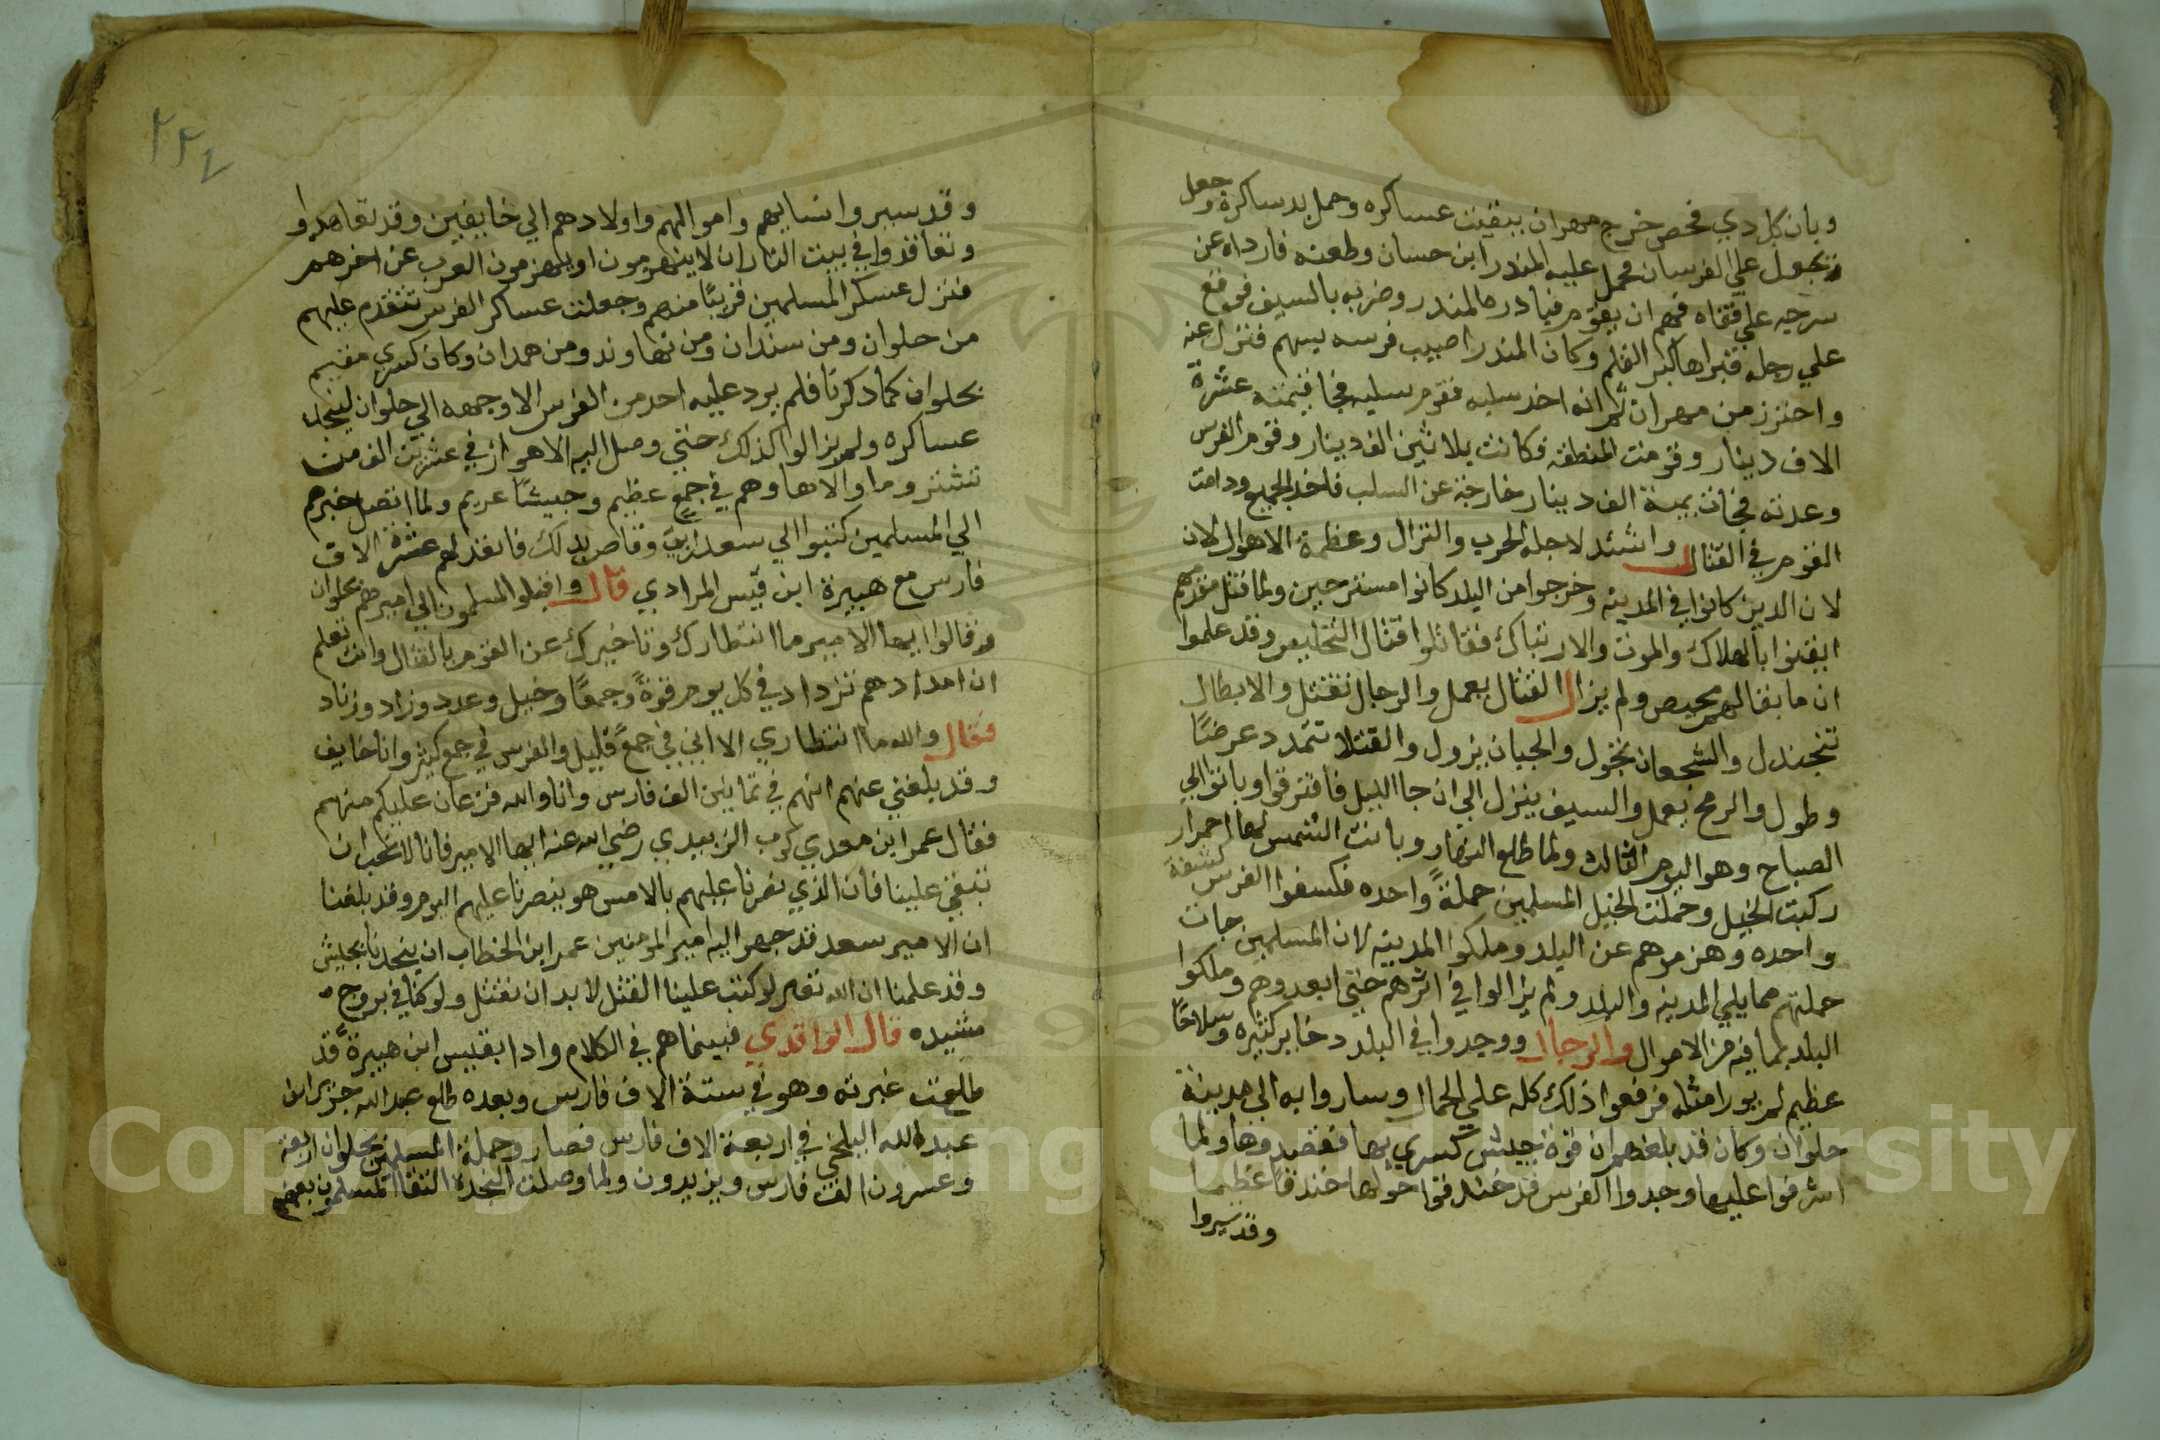 وبان كل ردي فحص خرج مهران ببقيت عساكره وحمل بدساكرة وجعل
يجعل علي الفرسان فحمل عليه المندر ابن حسان وطعنه فارداه عن
سرجه علي قفاه فهم ان يقوم فبادره المندر وضربه بالسيف فوقع
علي رجله فبراها كبر القلم وكان المندر اصيب فرسه بسهم فنزل عنه
واحتز من مهران ثم انه اخد سلبه فقوم سلبه فجا قيمته عشرة
الاف دينار وقومت المنطقه فكانت بثلاثين الف دينار وقوم الفرس
وعدته فجات بمية الف دينار خارجة عن السلب فاخد الجميع ودامت
القوم في القتال واشتد لاجله الحرب والنزال وعظمة الاهوال لان
لان الدين كانوا في المدينه وخرجوا من البلد كانوا مستريحين ولما قتل مقدمهم
ايقنوا بالهلاك والموت والارتباك فقاتلوا قتال وقد علموا
ان ما بقا لهم محيص ولم يزال القتال يعمل والرجال تقتل والابطال
تتجندل والشجعان تجول والجبان يزول والقتلا تتمدد عرضًا
وطول والرمح يعمل والسيف ينزل الي ان جا الليل فافترقوا وباتوا الي
الصباح وهو اليوم الثالث ولما طلع النهار وبانت الشمس لها احمرار
ركبت الخيل وحملت الخيل المسلمين حملةً واحده فكسفوا الفرس كشفة
واحده وهزموهم عن البلد وملكوا المدينه لان المسلمين جات
حملتهم مما يلي المدينه والبلد ولم يزالوا في اثرهم حتي ابعدوهم وملكوا
البلد بما فيه من الاموال والرجال ووجدوا في البلد دخاير كثيره وسلاحًا
عظيم لم يورا مثله فرفعوا ذلك كله علي الجمال وساروا به الي مدينة
حلوان وكان قد بلغهم ان قوة جيش كسري بها فقصدوها ولما
اشرفوا عليها وجدوا الفرس قد خندقوا حولها خندقًا عظيما
وقد سيروا
٢٢٤
وقد سيروا انسايهم واموالهم واولادهم الي خايقين وقد تعاهدوا
وتعاقدوا في بيت النار ان لا ينهزمون او يهزمون العرب عن اخرهم
فنزل عسكر المسلمين قريبًا منهم وجعلت عساكر الفرس تتقدم عليهم
من حلوان ومن سندان ومن نهاوند ومن همدان وكان كسري مقيم
بحلوان كما دكرنا فلم يرد عليه احد من الفرس الا وجهه الي حلوان لينجد
عساكره ولم يزالوا كذلك حتي وصل اليه الاهواز في عشرين الف من
تشتر وما والاها وهم في جمع عظيم وجيشًا عريم ولما اتصل خبرهم
الي المسلمين كتبوا الي سعد ابن وقاص بدلك فانفد لهم عشرة الاف
فارس مع هبيرة ابن قيس المرادي قال واقبلوا المسلمون الي اميرهم بحلوان
وقالوا ايها الامير ما انتظارك وتاخيرك عن القوم بالقتال وانت تعلم
ان امدادهم تزداد في كل يوم قوةً وجمعًا وخيل وعدد وزاد وزناد
فقال والله ما انتظاري الا انني في جمعً قليل والفرس في جمع كثير وانا خايف
وقد بلغني عنهم انهم في ثمانين الف فارس وانا والله فزعان عليكم منهم
فقال عمر ابن معدي كرب الزبيدي رضي الله عنه ايها الامير فانا لا نحب ان
تبقي علينا فان الذي نصرنا عليهم بالامس هو ينصرنا عليهم اليوم وقد بلغنا
ان الامير سعد قد جهز اليه امير المومنين عمر ابن الخطاب ان ينجدنا بجيش
وقد علمنا ان الله تعالى لو كتب علينا القتل لا بد ان نقتل ولو كنا في بروج
مشيده قال الواقدي فبينما هم في الكلام وادا بقيس ابن هبيرة قد
طلعت غبرته وهو في ستة الاف فارس وبعده طلع عبد الله جزير ابن
عبد الله البلخي في اربعة الاف فارس فصار وحملة المسلمين بحلوان اربعة
وعسرون الف فارس ويزيدون ولما وصلت النجدة التقا المسلمون بعضهم
Copyright © King Saud University
1957